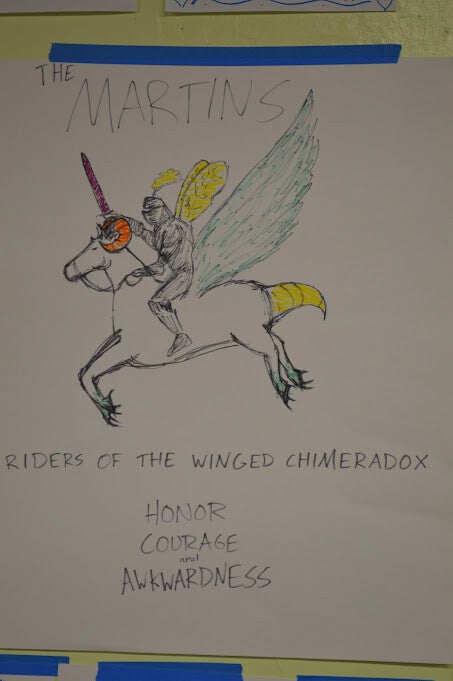 THE
MARTINS
RIDERS OF THE WINGED CHIMERADOX
HONOR
COURAGE
and
AWKWARDNESS